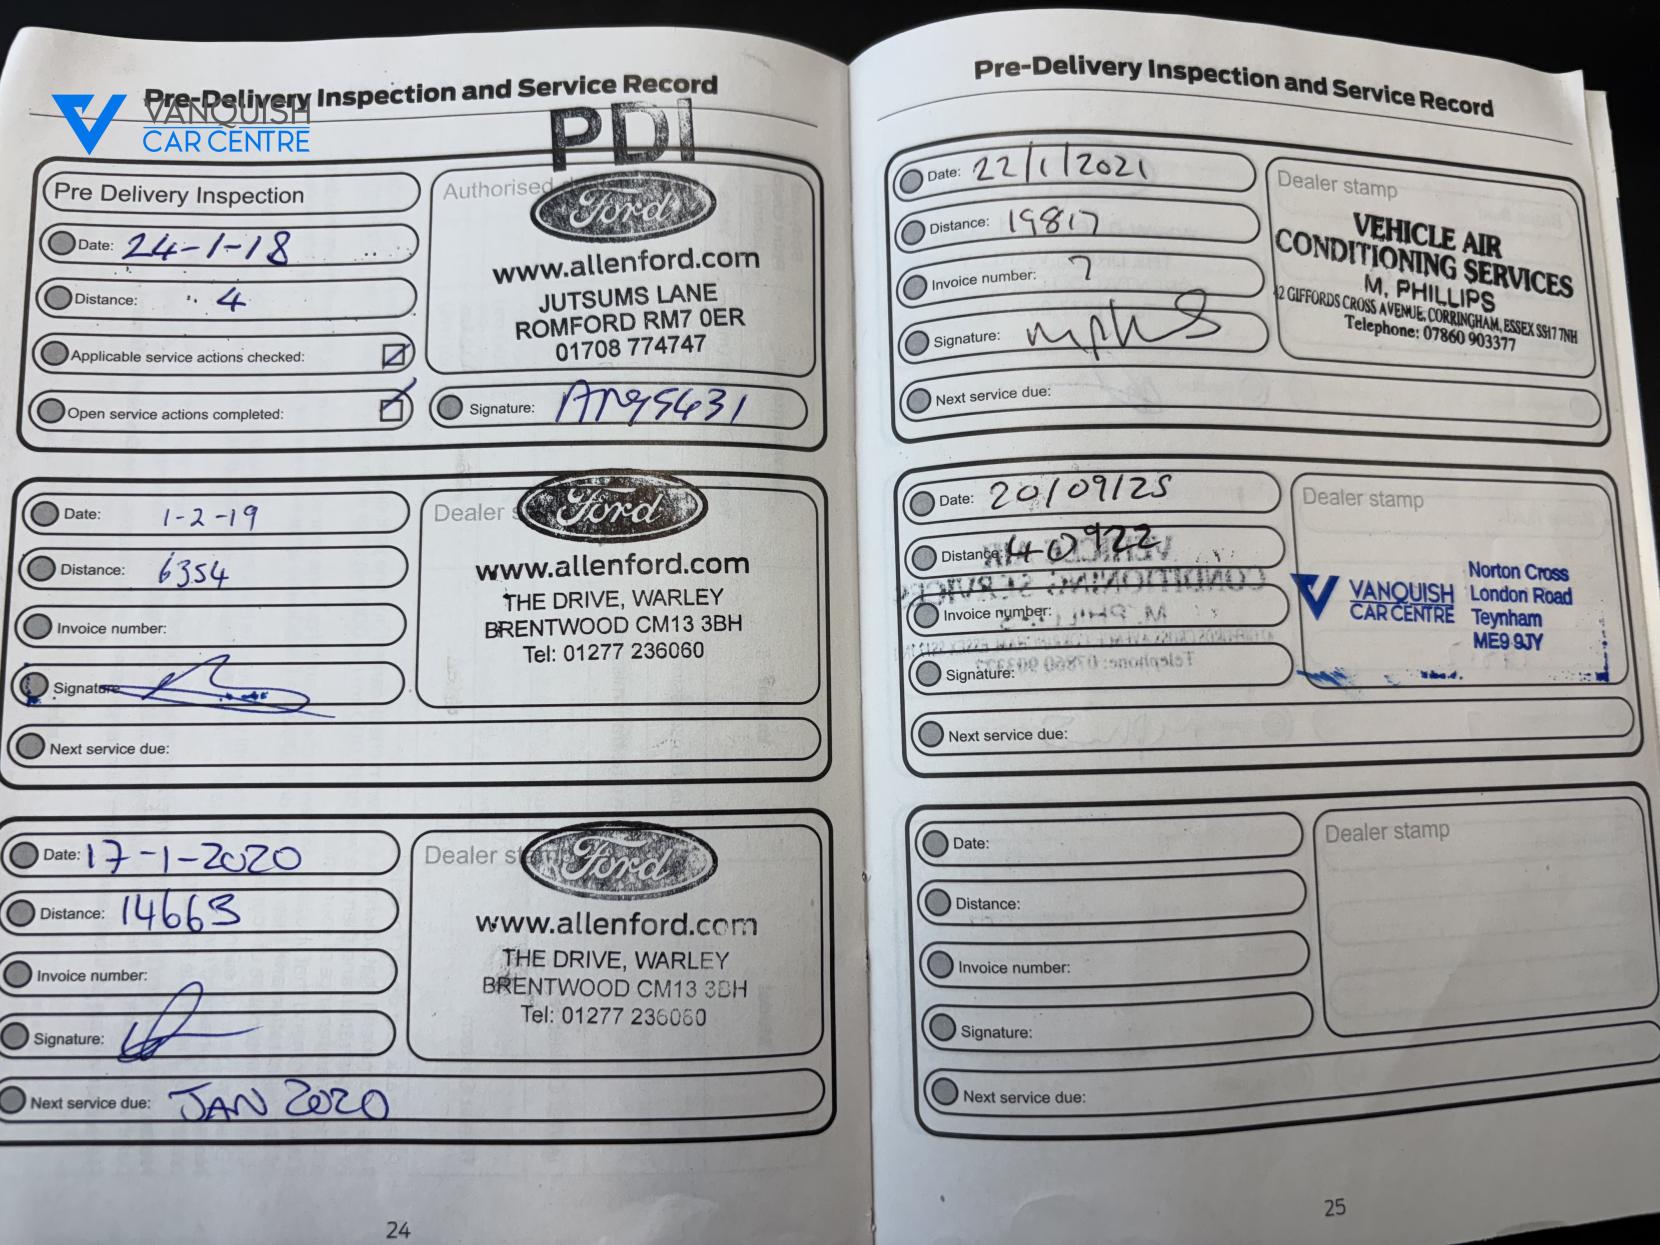 Pre-Delivery Inspection and Service Record
VANQUISH
CAR CENTRE
PDI
Pre Delivery Inspection
Authorised
Ford
Date: 24-1-18
www.allenford.com
Distance: 4
JUTSUMS LANE
ROMFORD RM7 0ER
01708 774747
Applicable service actions checked:
Open service actions completed:
Signature:
Date: 1-2-19
Dealer
Ford
www.allenford.com
Distance: 6354
THE DRIVE, WARLEY
BRENTWOOD CM13 3BH
Tel: 01277 236060
Invoice number:
Signature:
Next service due:
Date: 17-1-2020
Dealer
Ford
www.allenford.com
Distance: 14663
THE DRIVE, WARLEY
BRENTWOOD CM13 3BH
Tel: 01277 236060
Invoice number:
Signature:
Next service due: JAN 2020
24
Pre-Delivery Inspection and Service Record
Date: 22/1/2021
Dealer stamp
Distance: 19817
VEHICLE AIR
CONDITIONING SERVICES
M. PHILLIPS
42 GIFFORDS CROSS AVENUE, CORRINGHAM, ESSEX SS17 7NH
Telephone: 07860 903377
Invoice number: 7
Signature:
Next service due:
Date: 20/09/25
Dealer stamp
Distance: 40922
Invoice number:
VANQUISH
CAR CENTRE
Norton Cross
London Road
Teynham
ME9 9JY
Signature:
Next service due:
Date:
Dealer stamp
Distance:
Invoice number:
Signature:
Next service due:
25